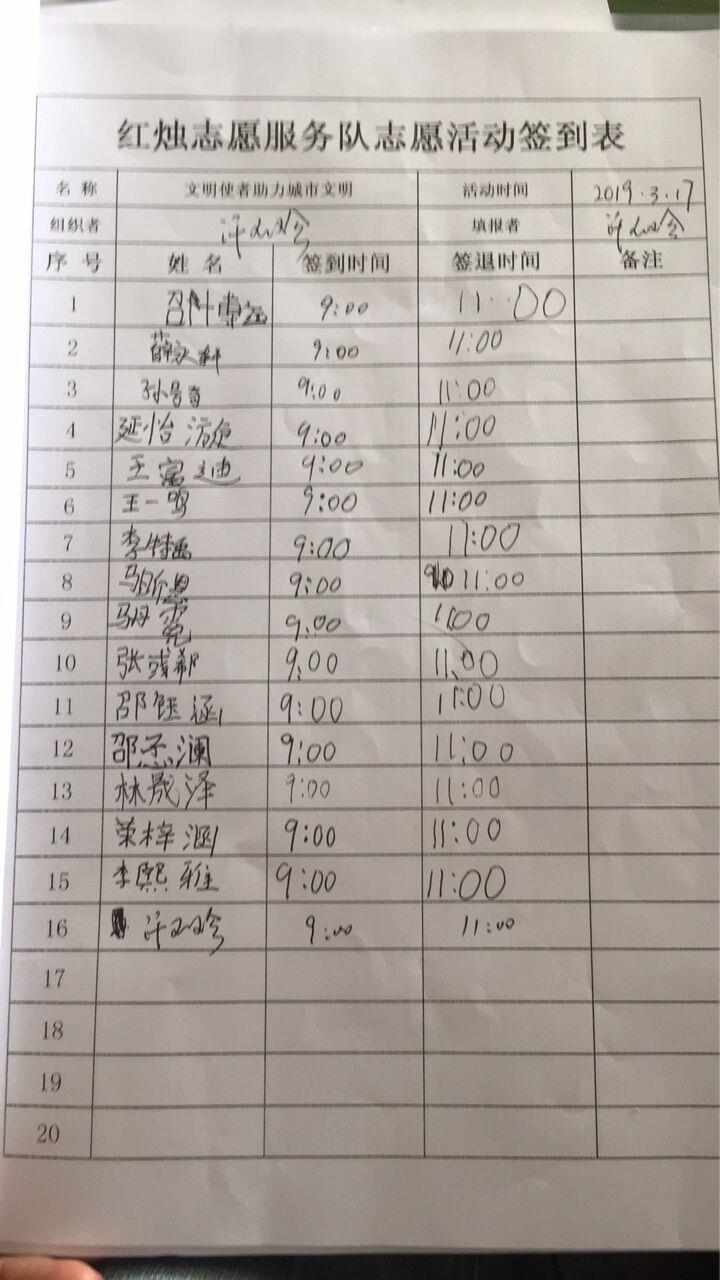 红烛志愿服务队志愿活动签到表
名称 文明使者助力城市文明 活动时间 2019.3.17
组织者 许双玲 填报者 许双玲
序号 姓名 签到时间 签退时间 备注
1 9:00 11:00
2 薛 9:00 11:00
3 孙 9:00 11:00
4 延怡 9:00 11:00
5 王富迪 9:00 11:00
6 王一鸣 9:00 11:00
7 李 9:00 11:00
8 马 9:00 11:00
9 马 9:00 11:00
10 张彧郗 9:00 11:00
11 邵钰涵 9:00 11:00
12 邵 澜 9:00 11:00
13 林晟泽 9:00 11:00
14 荣梓涵 9:00 11:00
15 李熙雅 9:00 11:00
16 许双玲 9:00 11:00
17
18
19
20